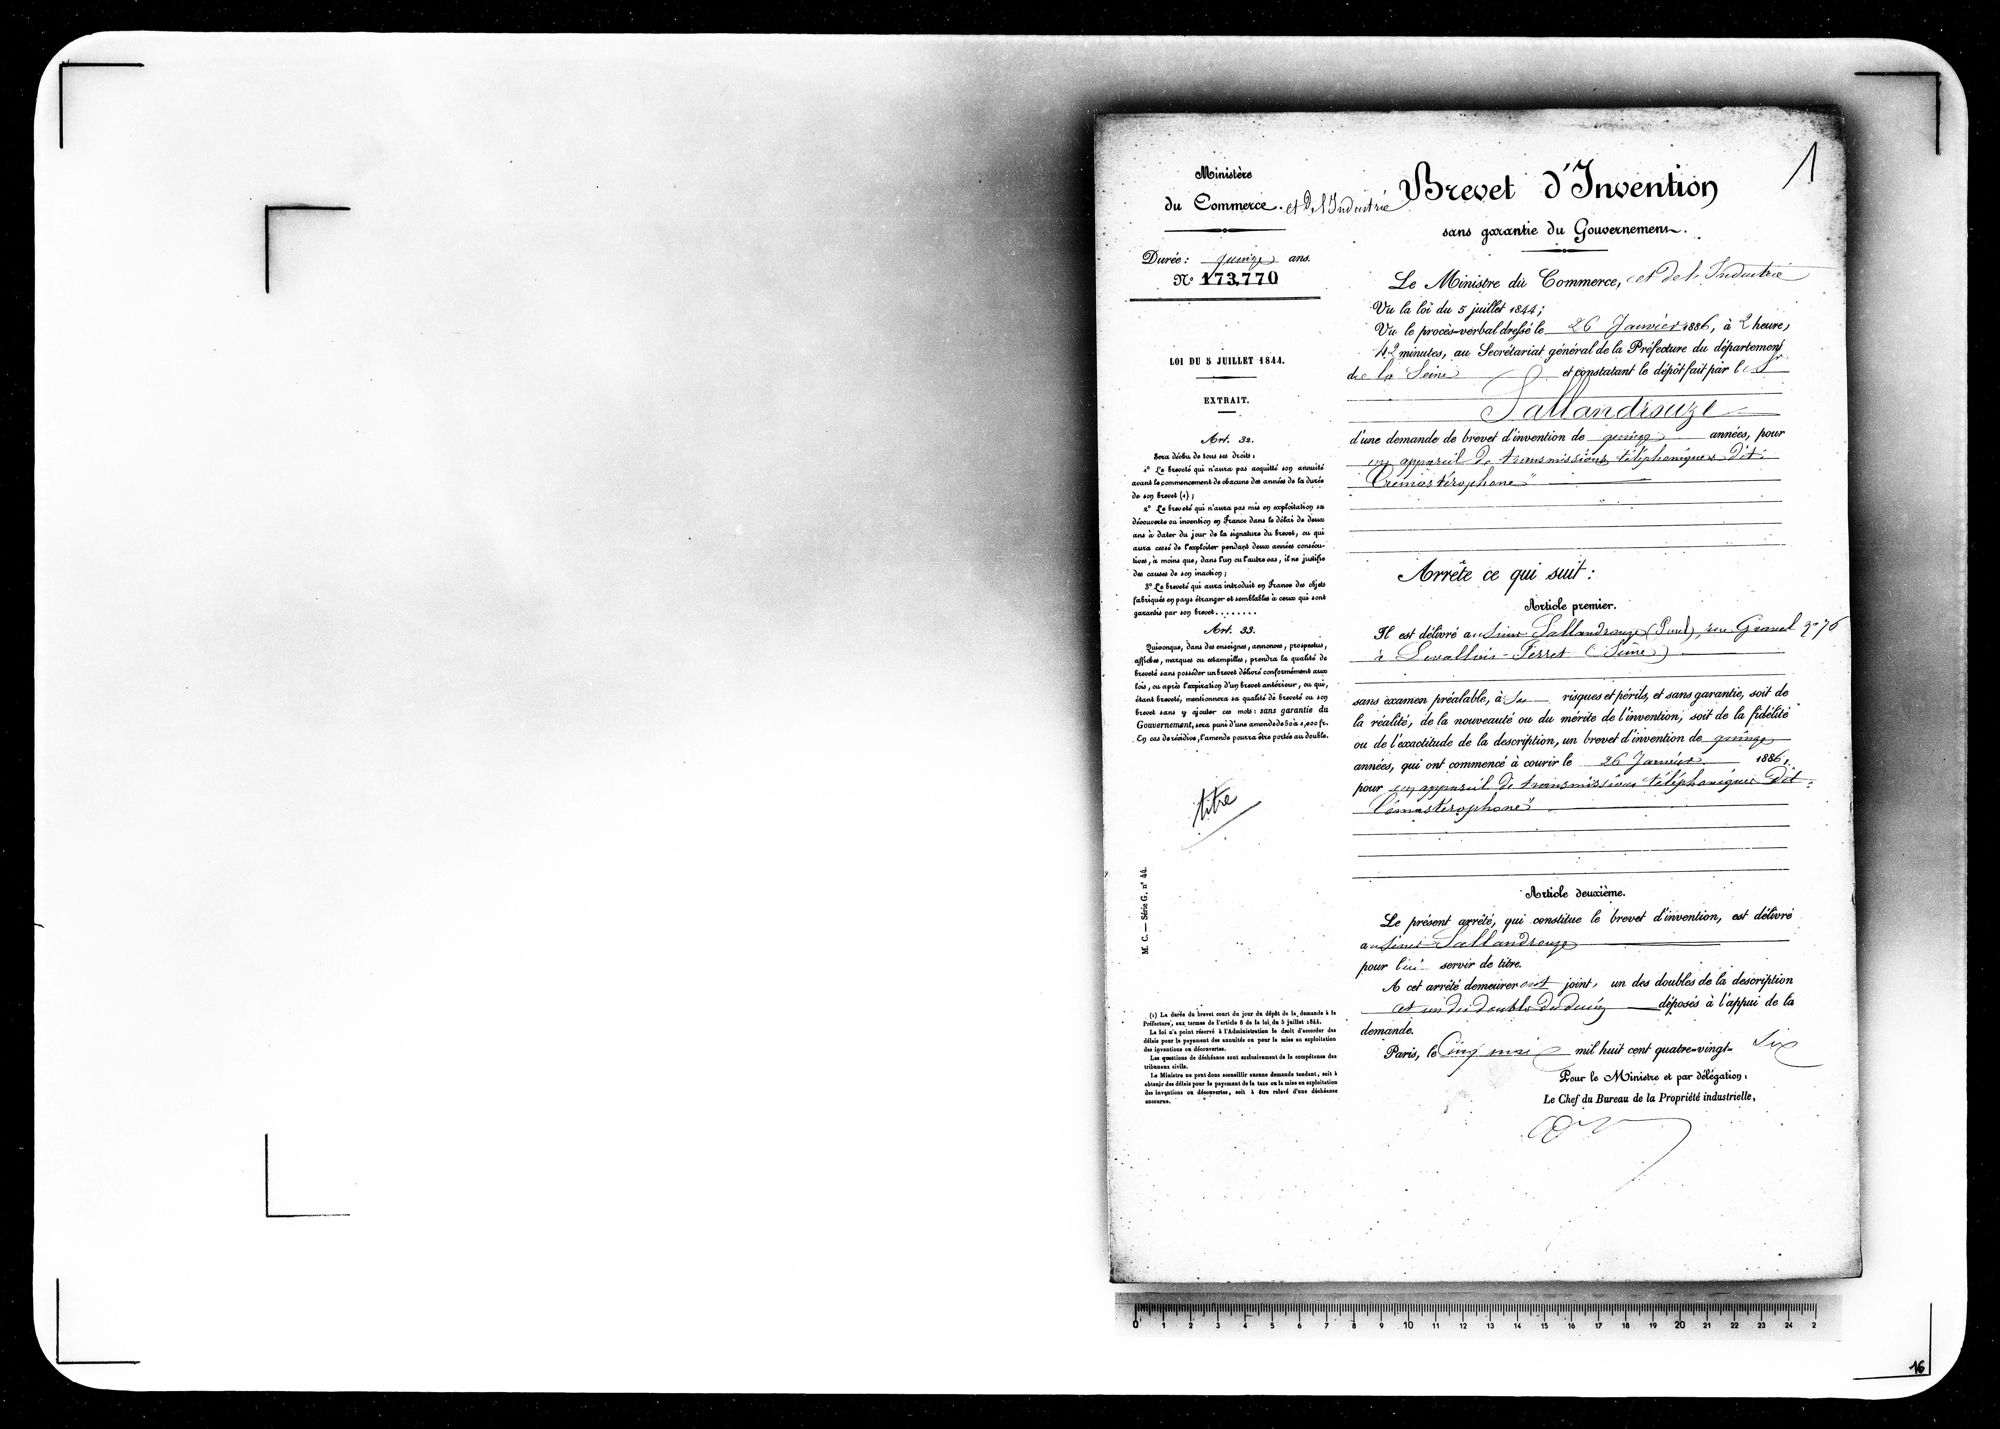 1
Ministère
du Commerce. et de l'Industrie
Durée : quinze ans.
N° 173,770
LOI DU 5 JUILLET 1844.
EXTRAIT.
Art. 32.
Sera déchu de tous ses droits :
1° Le breveté qui n'aura pas acquitté son annuité
avant le commencement de chacune des années de la durée
de son brevet (1) ;
2° Le breveté qui n'aura pas mis en exploitation sa
découverte ou invention en France dans le délai de deux
ans à dater du jour de la signature du brevet, ou qui
aura cessé de l'exploiter pendant deux années consécu-
tives, à moins que, dans l'un ou l'autre cas, il ne justifie
des causes de son inaction ;
3° Le breveté qui aura introduit en France des objets
fabriqués en pays étranger et semblables à ceux qui sont
garantis par son brevet........
Art. 33.
Quiconque, dans des enseignes, annonces, prospectus,
affiches, marques ou estampilles, prendra la qualité de
breveté sans posséder un brevet délivré conformément aux
lois, ou après l'expiration d'un brevet antérieur, ou qui,
étant breveté, mentionnera sa qualité de breveté ou son
brevet sans y ajouter ces mots : sans garantie du
Gouvernement, sera puni d'une amende de 50 à 1,000 fr.
En cas de récidive, l'amende pourra être portée au double.
titre
M. C. — Série G. n° 44.
(1) La durée du brevet court du jour du dépôt de la demande à la
Préfecture, aux termes de l'article 8 de la loi du 5 juillet 1844.
La loi n'a point réservé à l'Administration le droit d'accorder des
délais pour le payement des annuités ou pour la mise en exploitation
des inventions ou découvertes.
Les questions de déchéance sont exclusivement de la compétence des
tribunaux civils.
Le Ministre ne peut donc accueillir aucune demande tendant, soit à
obtenir des délais pour le payement de la taxe ou la mise en exploitation
des inventions ou découvertes, soit à être relevé d'une déchéance
encourue.
Brevet d'Invention
sans garantie du Gouvernement.
Le Ministre du Commerce, et de l'Industrie
Vu la loi du 5 juillet 1844 ;
Vu le procès-verbal dressé le 26 Janvier 1886, à 2 heures
42 minutes, au Secrétariat général de la Préfecture du département
de la Seine et constatant le dépôt fait par le Sr
Sallandrouze
d'une demande de brevet d'invention de quinze années, pour
un appareil de transmissions téléphoniques dit :
Crémastérophone"
Arrête ce qui suit :
Article premier.
Il est délivré au sieur Sallandrouze (Paul), rue Gravel n° 76
à Levallois-Perret (Seine)
sans examen préalable, à ses risques et périls, et sans garantie, soit de
la réalité, de la nouveauté ou du mérite de l'invention, soit de la fidélité
ou de l'exactitude de la description, un brevet d'invention de quinze
années, qui ont commencé à courir le 26 Janvier 1886,
pour un appareil de transmissions téléphoniques dit :
Crémastérophone"
Article deuxième.
Le présent arrêté, qui constitue le brevet d'invention, est délivré
au sieur Sallandrouze
pour lui servir de titre.
A cet arrêté demeureront joints un des doubles de la description
et un des doubles du dessin déposés à l'appui de la
demande.
Paris, le Cinq mai mil huit cent quatre-vingt- Six
Pour le Ministre et par délégation :
Le Chef du Bureau de la Propriété industrielle,
0 1 2 3 4 5 6 7 8 9 10 11 12 13 14 15 16 17 18 19 20 21 22 23 24 2
16